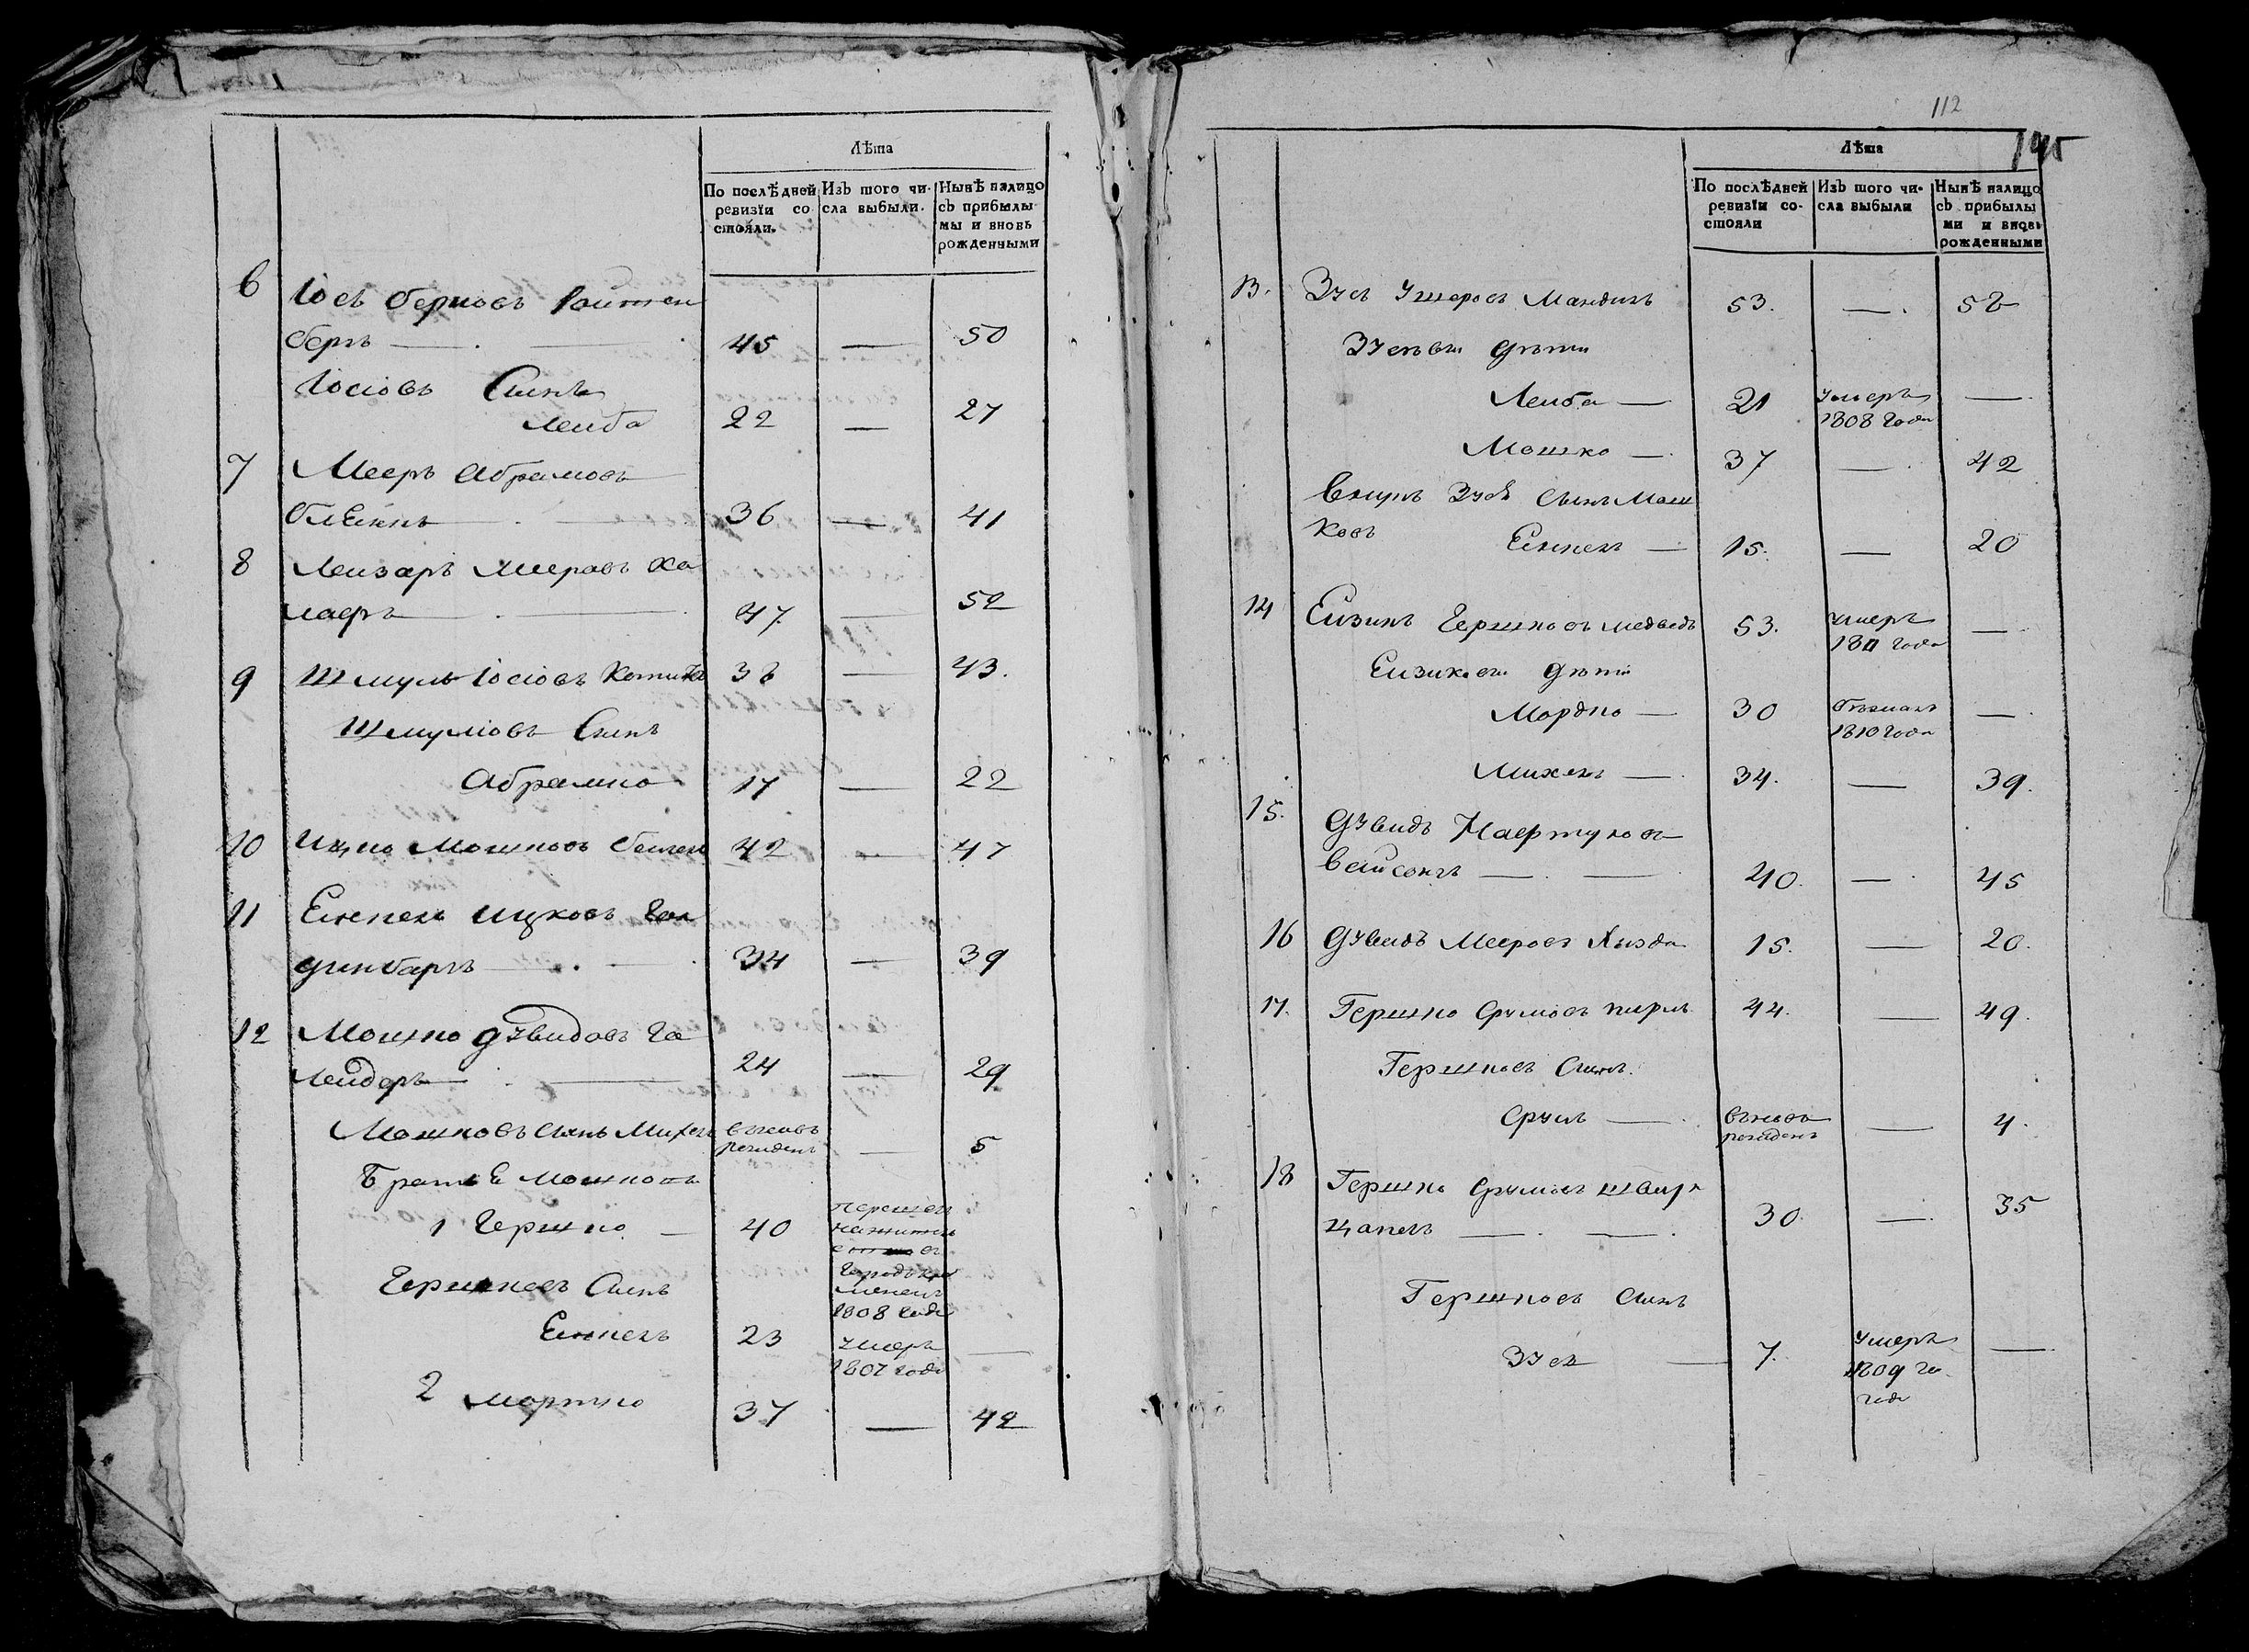 Лѣта
По послѣдней ревизїи со стояли.
Изъ того чи- сла выбыли.
Нынѣ налицо съ прибылы- мы и вновь рожденными
6 Іосъ Берковъ Роитен
берг — 45 — 50
Іосіовъ Сынъ
Леиба 22 — 27
7 Мееръ Абрамовъ
36 — 41
8 Леизаръ Мееровъ Ха
лаеръ 47. — 52
9 Шмуль Іосіовъ 38 — 43.
Шмуліовъ Сынъ
Абрамко 17 — 22
10 Ицко Мошковъ 42 — 47
11 Енкель Ицковъ Гол
динбаръ 34 — 39
12 Мошко Дувидовъ Го
лендеръ 24 — 29
Мошковъ Сынъ Михель вновь рожденъ — 5
Братья Мошковы
1 Гершко — 40 перешел на житель въ городъ Кре менецъ 1808 года
Гершковъ Сынъ
Енкель 23 умеръ 1807 года —
2 Мортко 37 — 42
112
195
Лѣта
По послѣдней ревизїи со- стояли
Изъ того чи- сла выбыли
Нынѣ налицо съ прибылы ми и вновь рожденными
13. Зусъ Ушеровъ Мандикъ 53. — 58
Зусевы дѣти
Леиба — 21 умеръ 1808 года —
Мошко — 37 — 42
Внукъ Зуся Сынъ Мош
ковъ Енкель — 15. — 20
14 Еизикъ Гершковъ Медведь 53. умеръ 1811 года —
Еизиковы дѣти
Мордко — 30 бѣжалъ 1810 года —
Михель — 34. — 39.
15. Дувидъ Нафтуловъ
Ваисонгъ — 40. — 45
16 Дувидъ Мееровъ 15. — 20.
17. Гершко Срулювъ 44. — 49.
Гершковъ Сынъ.
Сруль — вновь рожденъ — 4.
18 Гершко Срулювъ Швар
цапель — 30. — 35
Гершковъ Сынъ
Зусь — 7. умеръ 1809 го года —